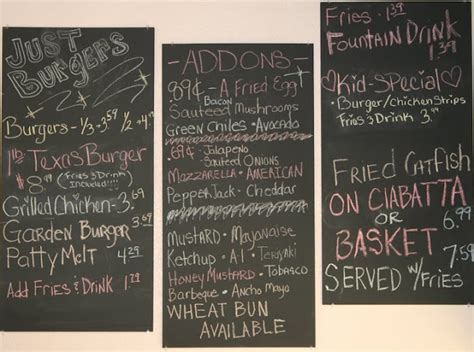 JUST
BURGERS
BURGERS - 1/3 - 3.59 1/2 - 4.19
1 lb TEXAS BURGER
$8.99 (FRIES & DRINK
INCLUDED!!!)
GRILLED CHICKEN - 3.69
GARDEN BURGER 3.69
PATTY MELT 4.29
ADD FRIES & DRINK 1.79
- ADDONS -
89¢ - A FRIED EGG
BACON
SAUTEED MUSHROOMS
GREEN CHILES • AVOCADO
.69¢ - JALAPENO
SAUTEED ONIONS
MOZZARELLA • AMERICAN
PEPPERJACK • CHEDDAR
MUSTARD • MAYONAISE
KETCHUP • A-1 • TERIYAKI
HONEY MUSTARD • TOBASCO
BARBEQUE • ANCHO MAYO
WHEAT BUN
AVAILABLE
FRIES - 1.39
FOUNTAIN DRINK
1.39
♡KID-SPECIAL♡
• BURGER/CHICKEN STRIPS
FRIES & DRINK 3.99
FRIED CATFISH
ON CIABATTA
OR 6.99
BASKET 7.59
SERVED W/FRIES